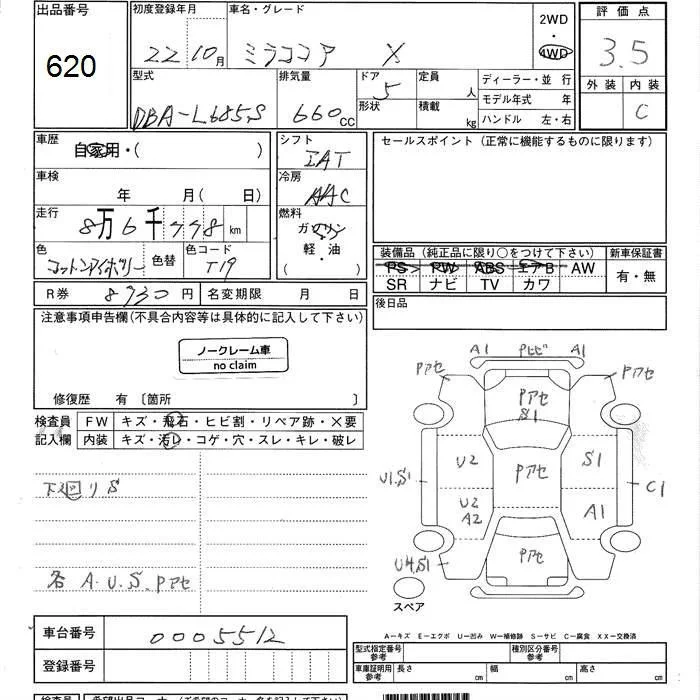 出品番号
620
初度登録年月
22 10月
車名・グレード
ミラココア X
2WD
・
4WD
評価点
3.5
外装 内装
C
型式
DBA-L685S
排気量
660cc
ドア
5
形状
定員
人
積載
kg
ディーラー・並行
モデル年式 年
ハンドル 左・右
車歴
自家用・( )
車検
年 月( 日)
走行
8万6千778km
色
コットンアイボリー
色替
色コード
T19
シフト
IAT
冷房
AAC
燃料
ガソリン
軽・油
( ・ )
セールスポイント(正常に機能するものに限ります)
装備品(純正品に限り○をつけて下さい)
PS PW ABS エアB AW
SR ナビ TV カワ
新車保証書
有・無
R券 8930円
名変期限 月 日
後日品
注意事項申告欄(不具合内容等は具体的に記入して下さい)
ノークレーム車
no claim
修復歴 有 〔箇所 〕
検査員
記入欄
FW キズ・飛石・ヒビ割・リペア跡・X要
内装 キズ・汚レ・コゲ・穴・スレ・キレ・破レ
下回りS
各 A.U.S.Pアセ
A1 Pヒビ A1
Pアセ Pアセ
Pアセ
S1
U2 Pアセ S1
U1.S1 C1
U2
A2 A1
Pアセ
U4.S1
スペア
A－キズ E－エクボ U－凹み W－補修跡 S－サビ C－腐食 XX－交換済
車台番号 0005512
登録番号
型式指定番号
参考
種別区分番号
参考
車庫証明用
参考
長さ cm 幅 cm 高さ cm